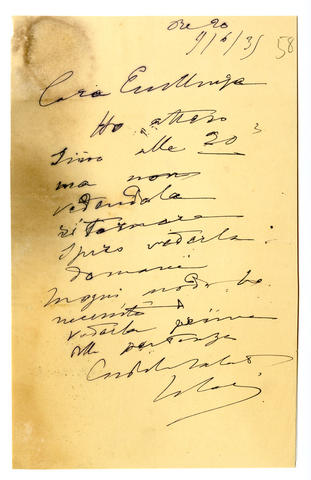 Ore 20
9/6/35 58
Cara
Ho atteso
sino alle 20
ma non
vedendola
ritornare
spero vederla
domani
In ogni modo ho
necessità
vederla prima
della partenza
Cordiali saluti